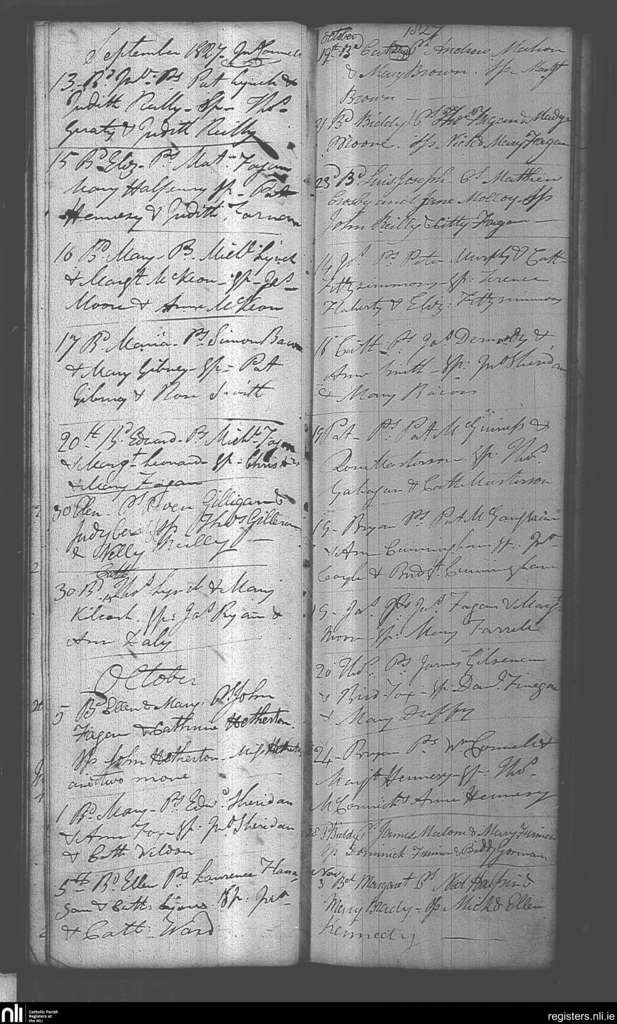 September 1827
13. Bd Jno. Ps Pat Lynch &
Judith Reilly - Sp - Thos
Geraty & Judith Reilly
15 Bd Eliz - Ps Mat Fagan
Mary Halfenny Sp - Pat
Hennesy & Judith
16 Bd Mary - Ps Michl Lynch
& Margt McKeon - Sp - Jas
Moore & Anne McKeon
17 Bd Maria - Ps Simon Bacon
& Mary Gibney - Sp - Pat
Gibney & Rose Smith
20th Bd Edward - Ps Michl Fagan
& Margt Leonard - Sp - Christr
& Mary Fagan
30 Ellen Ps Owen Gilligan &
Judy Sp Thos
& Nelly Reilly
30 Bd Thos Lynch & Mary
Sp: Jas Ryan &
Ann Daly
October
5 Bd Ellen & Mary. Ps John
Fagan & Catherine Hetherton
Sps John Hetherton - Miss
and two more
1 Bd Mary - Ps Edwd Sheridan
& Ann Fox - Sp - Jno Sheridan
& Cath Weldon
5th Bd Ellen Ps Laurence
& Cath: Sp: Jas
& Cath - Ward
October 1827
19th Bd Cath Ps Andrew Mahon
& Mary Brown. Sp. Margt
Brown -
21 Bd Biddy Ps Thos Fagan & Madge
Moore. Sps Nick & Mary Fagan
23d Bd Ps Matthew
Crosby and Jane Molloy Sps
John Reilly & Kitty Fagan
14 Jas Ps Pat - Murphy & Cath
Fitzsimmons - Sp - Terence
Flaherty & Eliz. Fitzsimmons
16 Cath - Ps Jas Dennedy &
Ann Smith - Sp: Jno Sheridan
& Mary Bacon
19 Pat - Ps Pat McGuiness &
Rose Masterson - Sp - Thos
Gahagan & Cath Masterson
19 - Bryan Ps Pat
& Ann Cunningham Sp: Jno
Coyle & Bridgt Cunningham
19 - Jas Ps Jas Fagan & Margt
Moore - Sp: Mary Farrell
20 Thos Ps James Gilsenan
& Brid Fox - Sp - Danl Finegan
& Mary Duffy
24 - Bryan Ps Wm Connell &
Margt Hennesy - Sp - Thos
McCormick & Anne Hennesy
28 Bd Biddy Ps James Malone & Mary
Sps Dominick & Biddy Gorman
Nov
3 Bd Margaret Ps Ned Halpin &
Mary Brady - Sps - Mick & Ellen
Kennedy
nli
Catholic Parish
Registers at
the NLI
registers.nli.ie